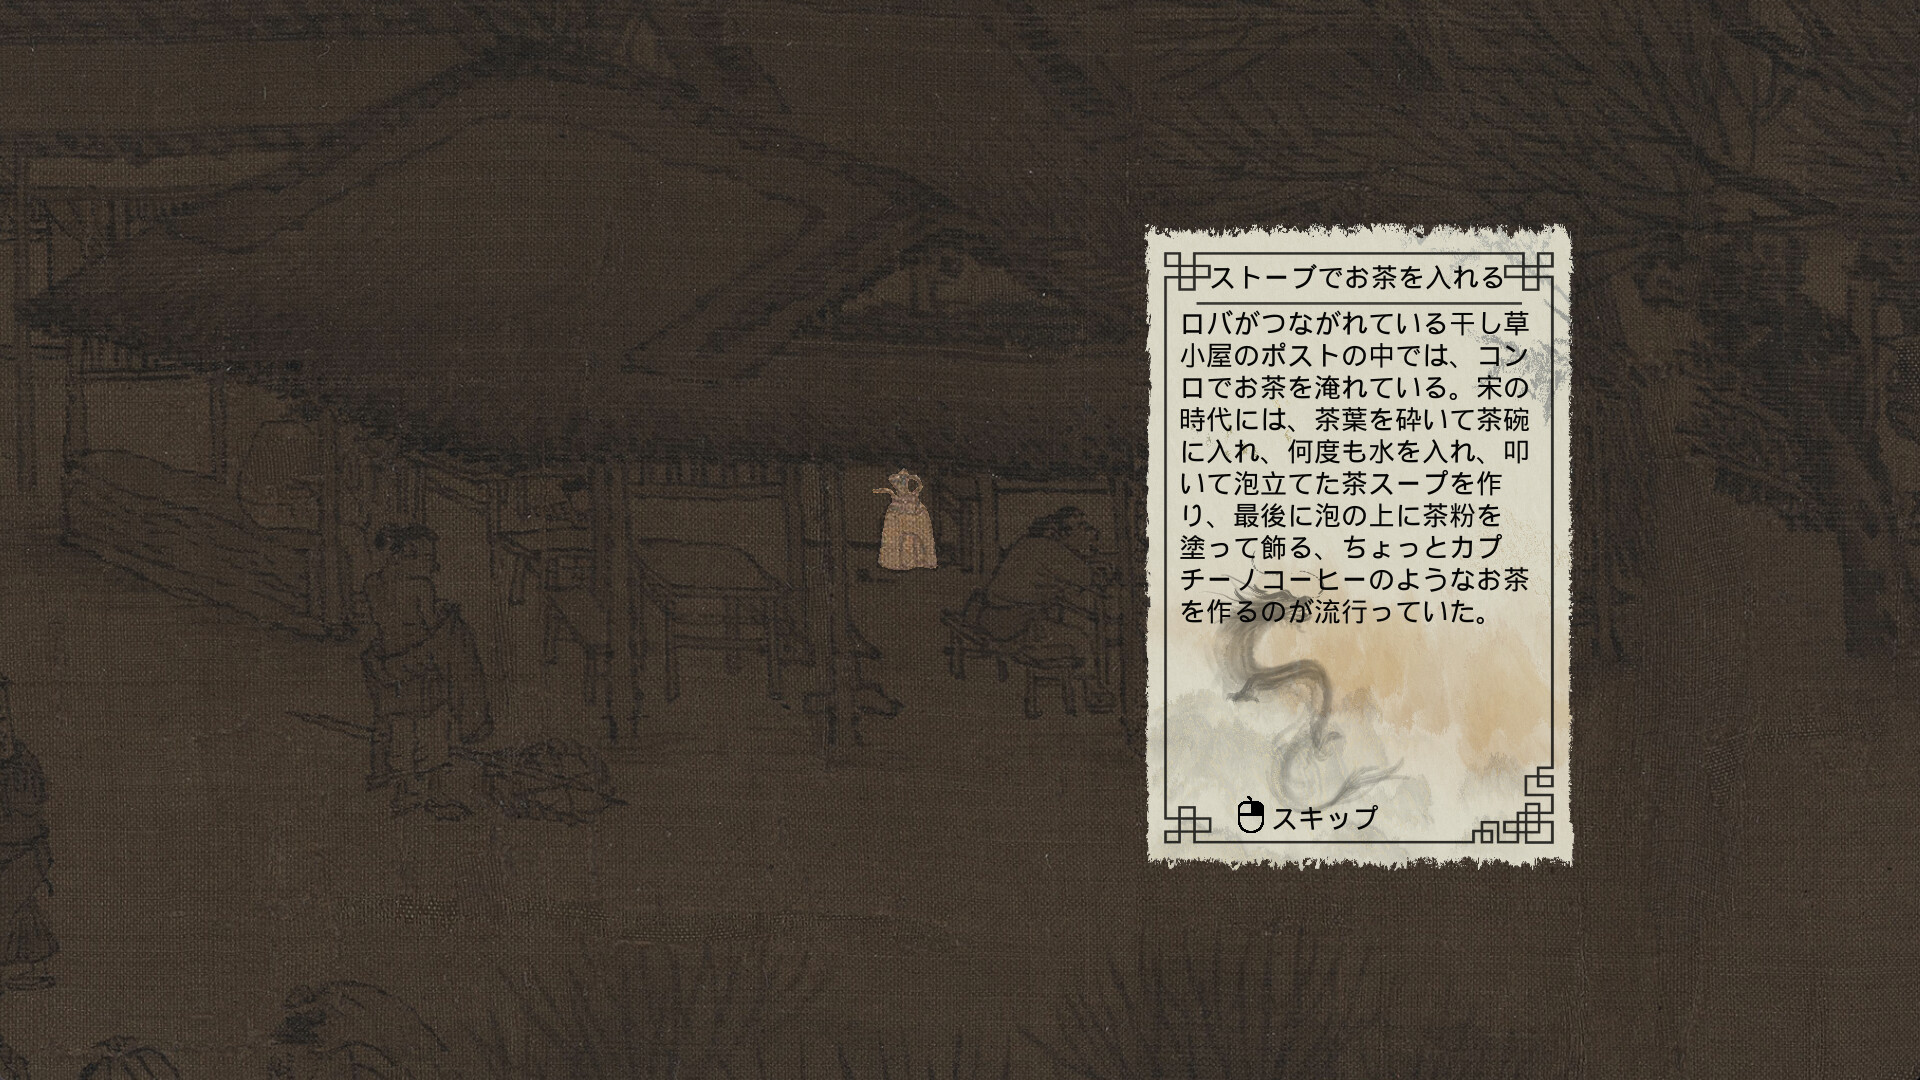 ストーブでお茶を入れる
ロバがつながれている干し草
小屋のポストの中では、コン
ロでお茶を淹れている。宋の
時代には、茶葉を砕いて茶碗
に入れ、何度も水を入れ、叩
いて泡立てた茶スープを作
り、最後に泡の上に茶粉を
塗って飾る、ちょっとカプ
チーノコーヒーのようなお茶
を作るのが流行っていた。
スキップ